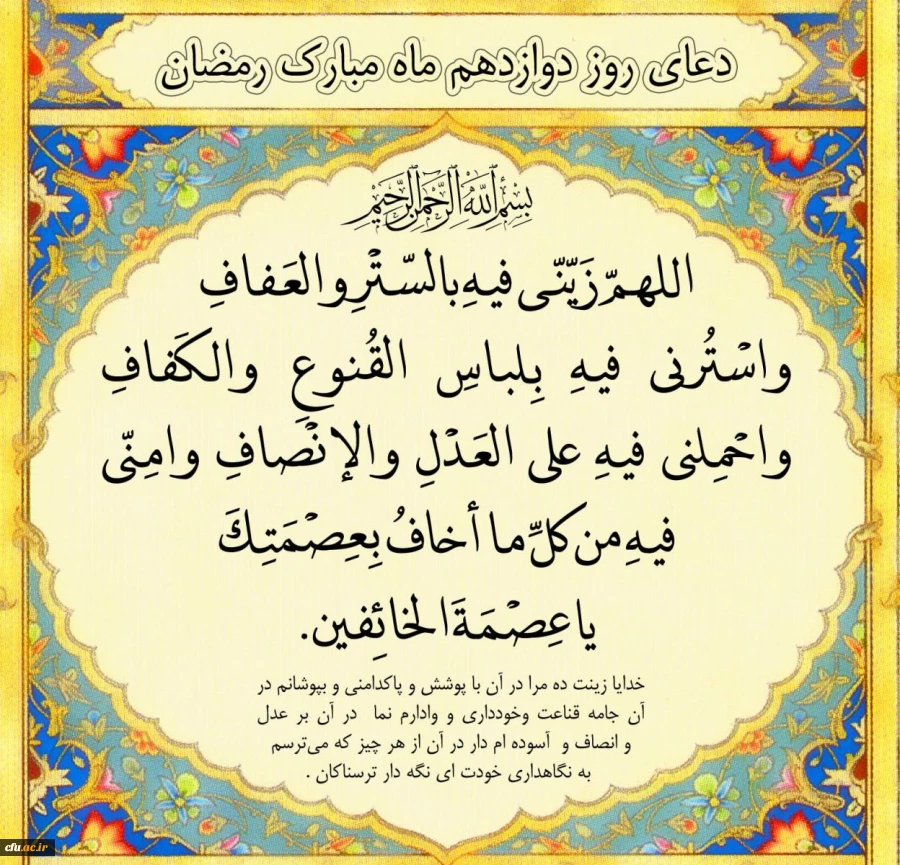 دعای روز دوازدهم ماه مبارک رمضان
بِسْمِ اللَّهِ الرَّحْمَٰنِ الرَّحِيمِ
اللهمّ زَيّنّی فيهِ بالسّتْرِ والعَفافِ
واسْتُرنی فيهِ بِلباسِ القُنوعِ والكَفافِ
واحْمِلنی فيهِ علی العَدْلِ والإنْصافِ وامِنّی
فيهِ من كلِّ ما أخافُ بِعِصْمَتِكَ
يا عِصْمَةَ الخائِفين.
خدایا زینت ده مرا در آن با پوشش و پاکدامنی و بپوشانم در
آن جامه قناعت وخودداری و وادارم نما در آن بر عدل
و انصاف و آسوده ام دار در آن از هر چیز که می‌ترسم
به نگاهداری خودت ای نگه دار ترسناکان .
cfu.ac.ir